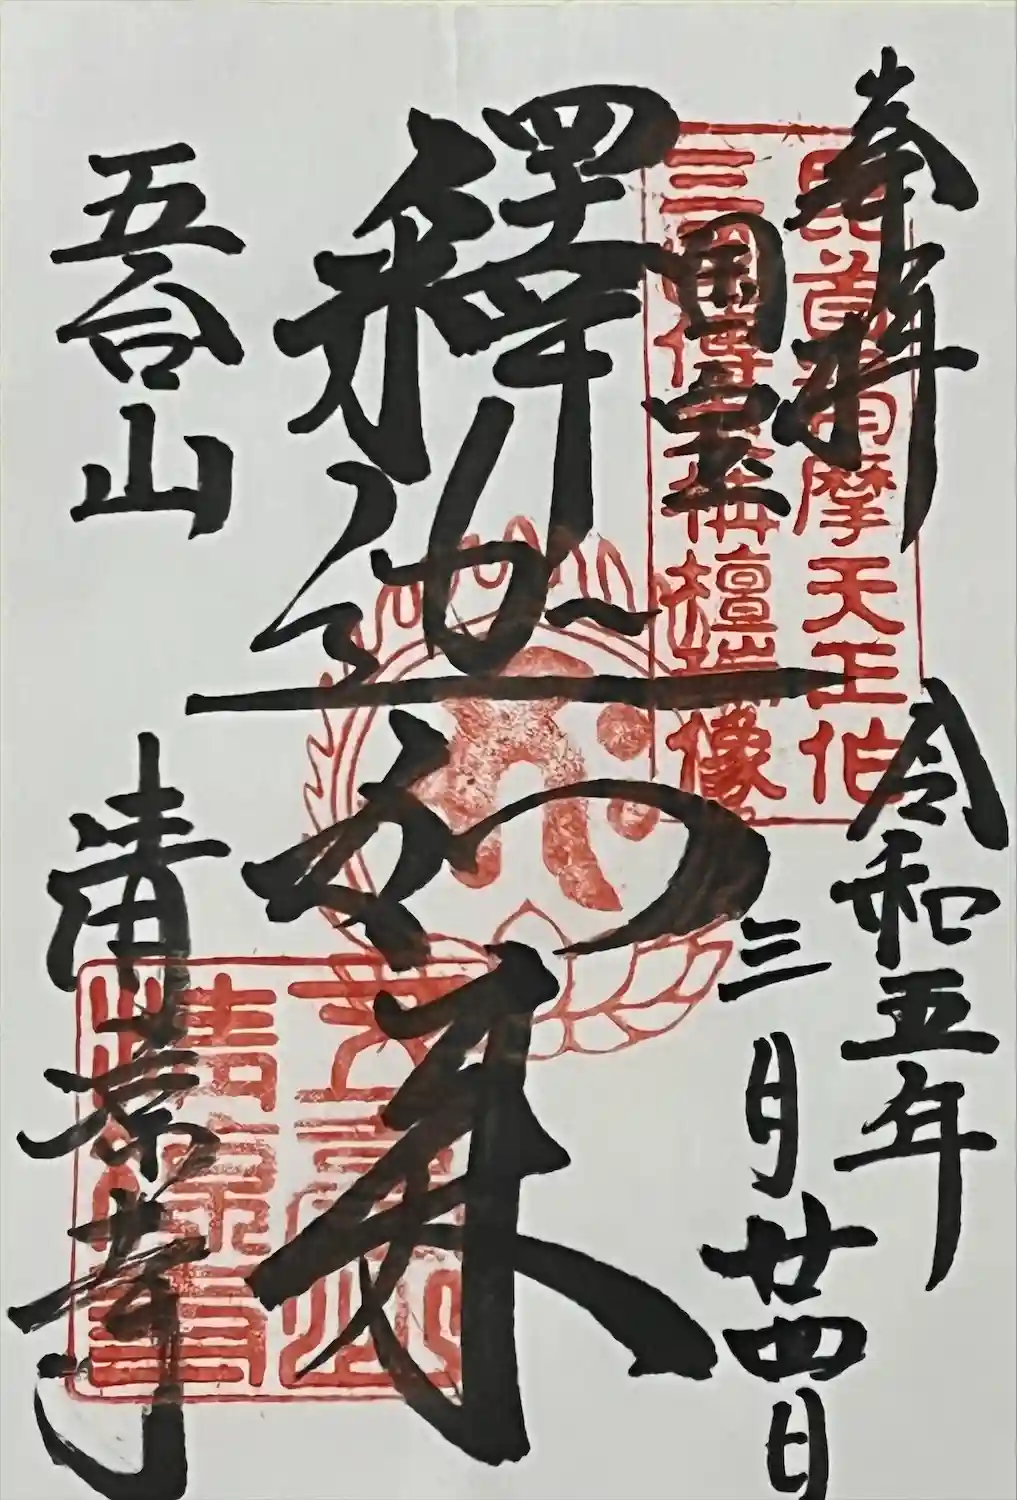 奉拝
令和五年
三月廿四日
毘首羯摩天王作
三國傳来栴檀瑞像
国宝
釋迦如来
五台山
清凉寺
五臺山
清凉寺